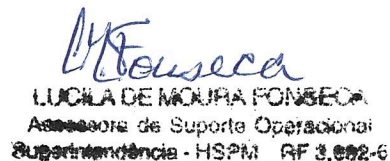 LMFonseca
LUCILA DE MOURA FONSECA
Assessora de Suporte Operacional
Superintendência - HSPM RF